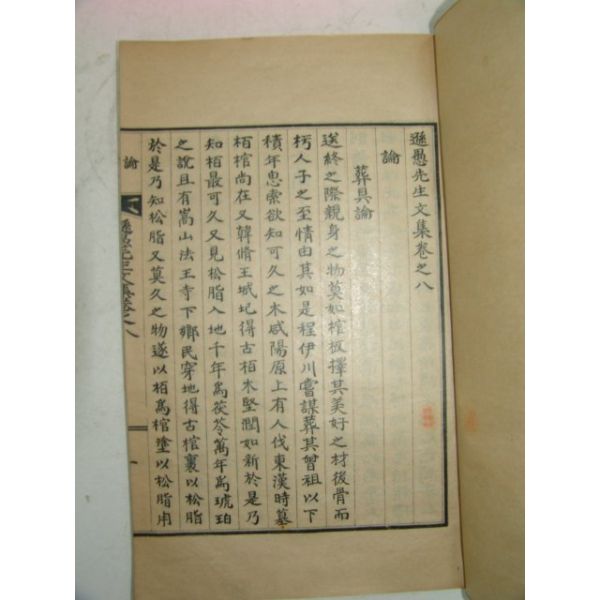 遜愚先生文集卷之八
論
葬具論
送終之際親身之物莫如棺板擇其美好之材後骨而
朽人子之至情由其如是程伊川嘗謀葬其曾祖以下
積年思索欲知可久之木咸陽原上有人伐東漢時墓
栢棺尚在又韓脩王城圮得古栢木堅潤如新於是乃
知栢最可久又見松脂入地千年爲茯苓萬年爲琥珀
之說且有嵩山法王寺下鄉民穿地得古棺裹以松脂
於是乃知松脂又莫久之物遂以栢爲棺塗以松脂用
論
遜愚先生文集卷之八
一